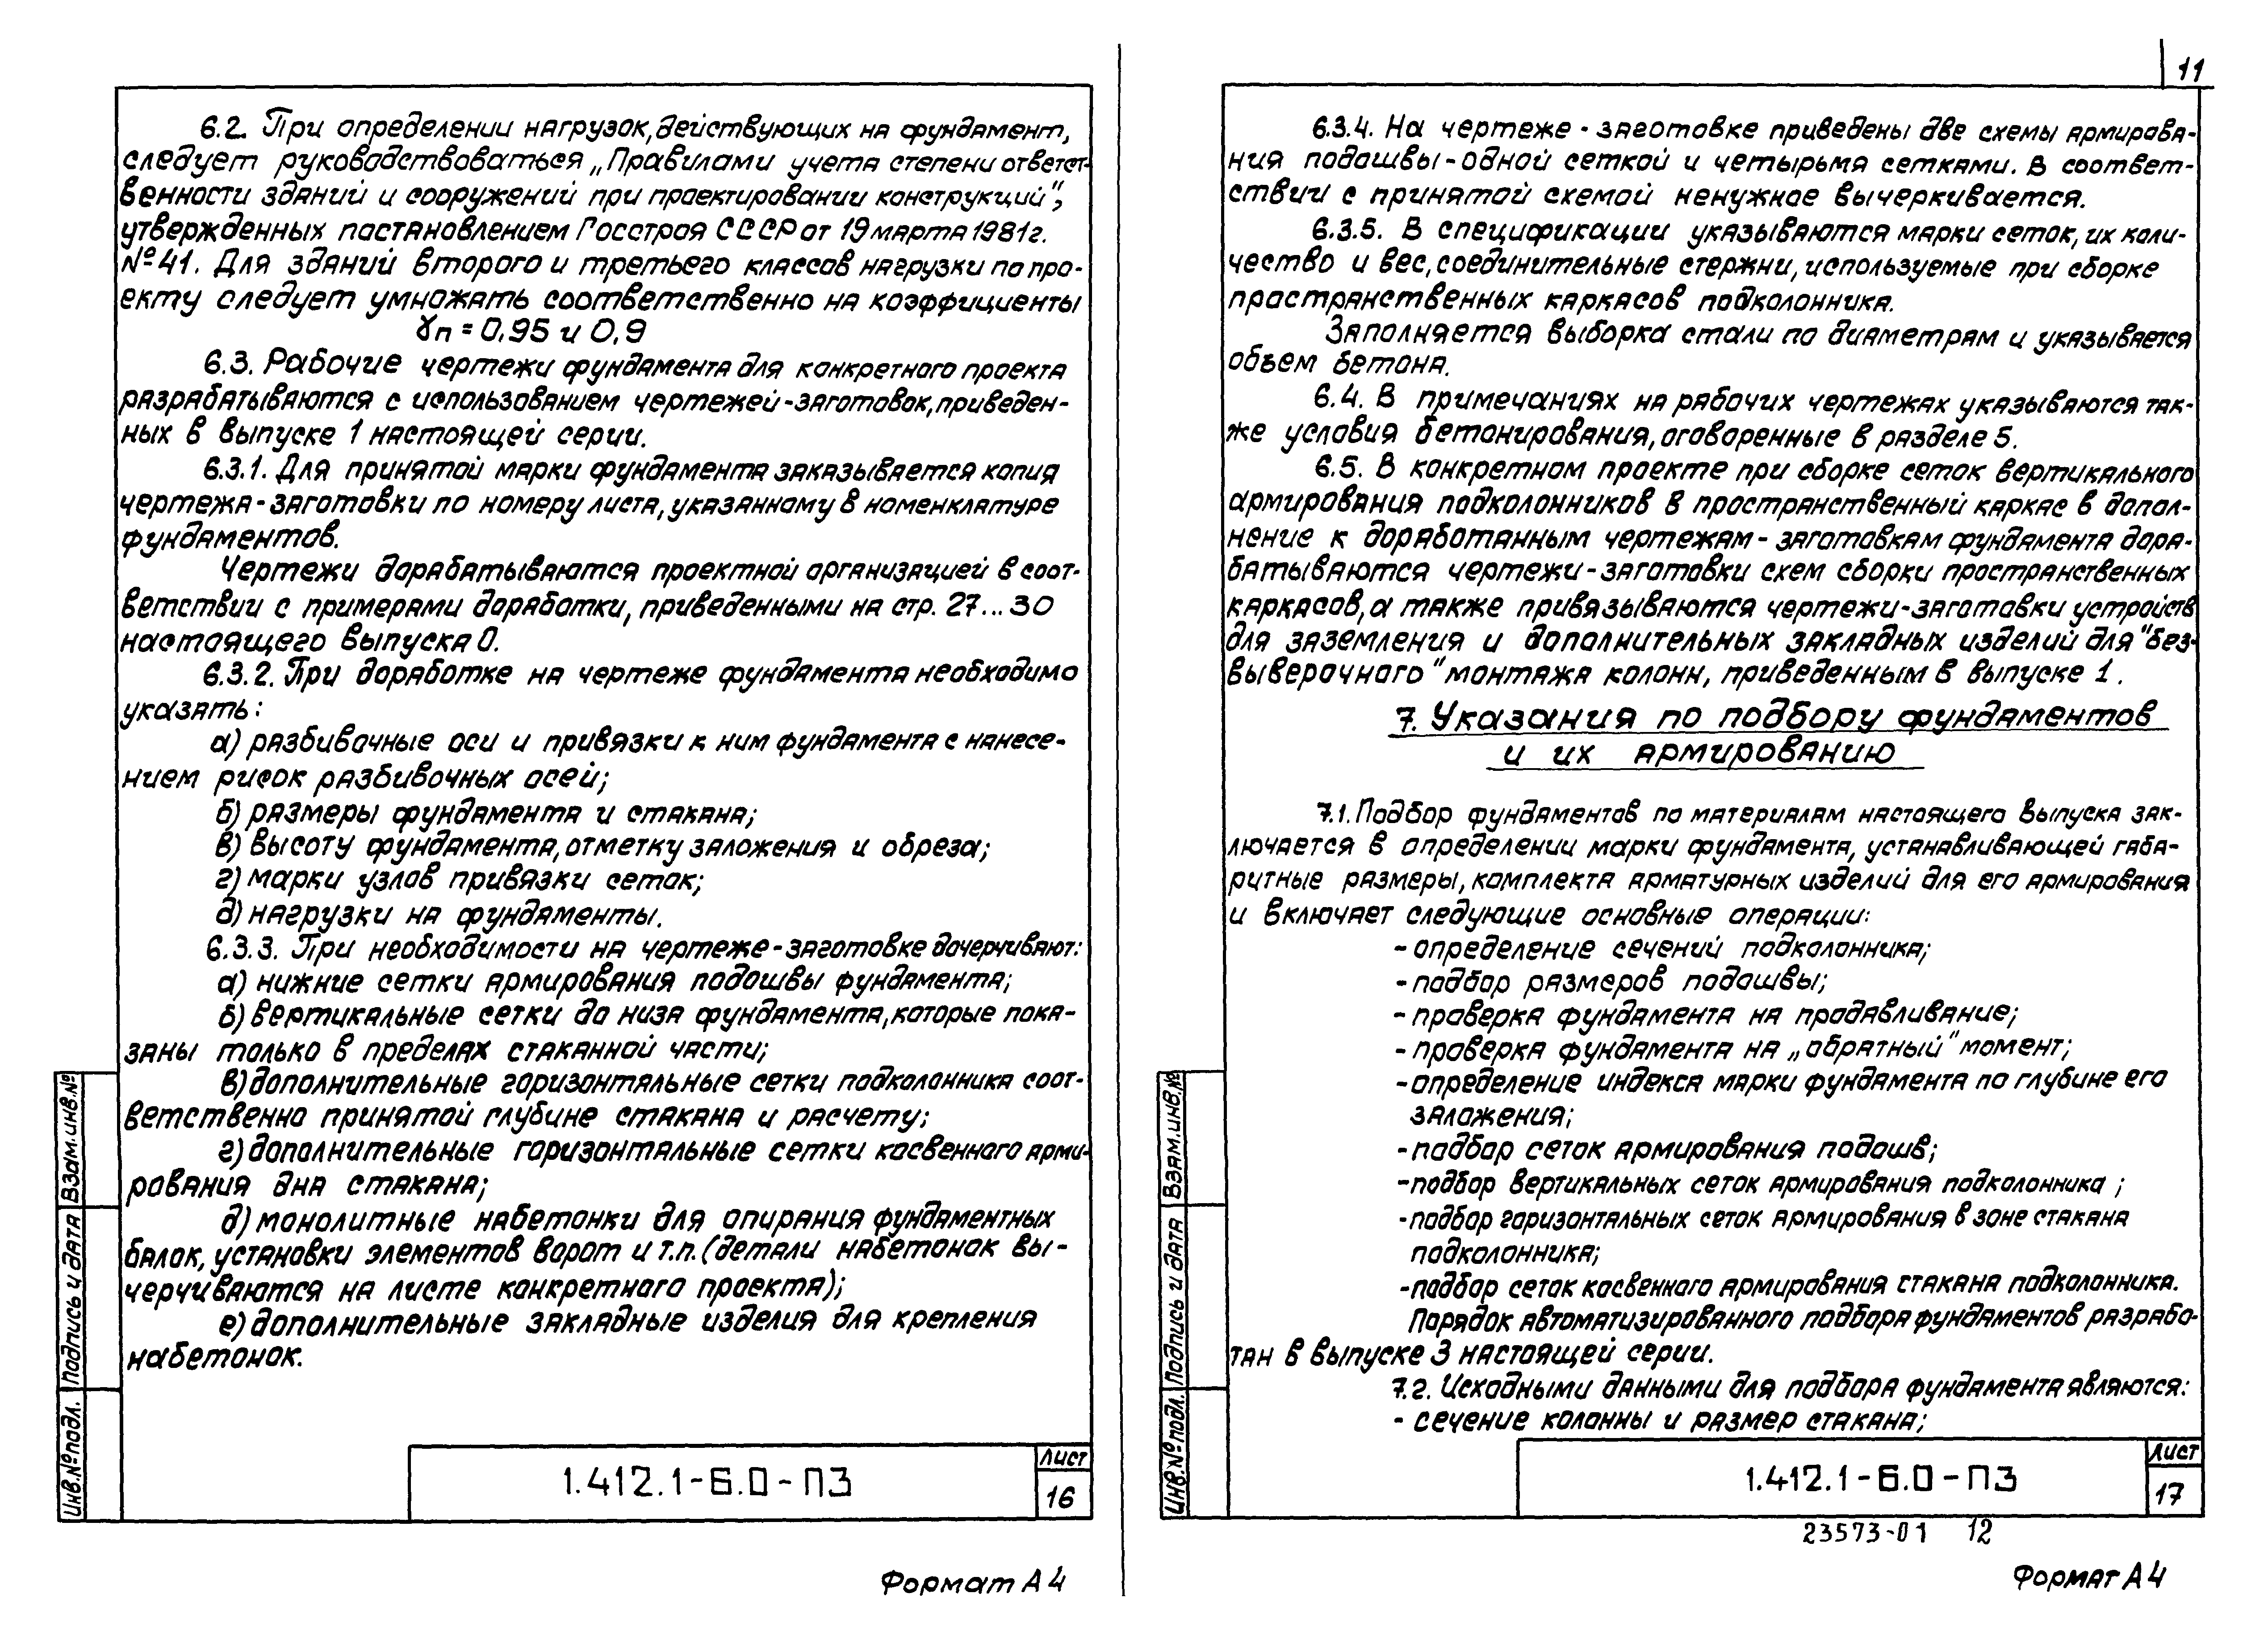 6.2. При определении нагрузок, действующих на фундамент,
следует руководствоваться „Правилами учета степени ответст-
венности зданий и сооружений при проектировании конструкций",
утвержденных постановлением Госстроя СССР от 19 марта 1981г.
№41. Для зданий второго и третьего классов нагрузки по про-
екту следует умножать соответственно на коэффициенты
γп = 0,95 и 0,9
6.3. Рабочие чертежи фундамента для конкретного проекта
разрабатываются с использованием чертежей-заготовок, приведен-
ных в выпуске 1 настоящей серии.
6.3.1. Для принятой марки фундамента заказывается копия
чертежа-заготовки по номеру листа, указанному в номенклатуре
фундаментов.
Чертежи дорабатываются проектной организацией в соот-
ветствии с примерами доработки, приведенными на стр. 27...30
настоящего выпуска 0.
6.3.2. При доработке на чертеже фундамента необходимо
указать:
а) разбивочные оси и привязки к ним фундамента с нанесе-
нием рисок разбивочных осей;
б) размеры фундамента и стакана;
в) высоту фундамента, отметку заложения и обреза;
г) марки узлов привязки сеток;
д) нагрузки на фундаменты.
6.3.3. При необходимости на чертеже-заготовке дочерчивают:
а) нижние сетки армирования подошвы фундамента;
б) вертикальные сетки до низа фундамента, которые пока-
заны только в пределах стаканной части;
в) дополнительные горизонтальные сетки подколонника соот-
ветственно принятой глубине стакана и расчету;
г) дополнительные горизонтальные сетки косвенного арми-
рования дна стакана;
д) монолитные набетонки для опирания фундаментных
балок, установки элементов ворот и т.п. (детали набетонок вы-
черчиваются на листе конкретного проекта);
е) дополнительные закладные изделия для крепления
набетонок.
Взам.инв.№
Подпись и дата
Инв.№подл.
1.412.1-6.0-ПЗ
Лист
16
Формат А4
11
6.3.4. На чертеже-заготовке приведены две схемы армирова-
ния подошвы-одной сеткой и четырьмя сетками. В соответ-
ствии с принятой схемой ненужное вычеркивается.
6.3.5. В спецификации указываются марки сеток, их коли-
чество и вес, соединительные стержни, используемые при сборке
пространственных каркасов подколонника.
Заполняется выборка стали по диаметрам и указывается
объем бетона.
6.4. В примечаниях на рабочих чертежах указываются так-
же условия бетонирования, оговоренные в разделе 5.
6.5. В конкретном проекте при сборке сеток вертикального
армирования подколонников в пространственный каркас в допол-
нение к доработанным чертежам-заготовкам фундамента дора-
батываются чертежи-заготовки схем сборки пространственных
каркасов, а также привязываются чертежи-заготовки устройств
для заземления и дополнительных закладных изделий для "без-
выверочного" монтажа колонн, приведенным в выпуске 1.
7. Указания по подбору фундаментов
и их армированию
7.1. Подбор фундаментов по материалам настоящего выпуска зак-
лючается в определении марки фундамента, устанавливающей габа-
ритные размеры, комплекта арматурных изделий для его армирования
и включает следующие основные операции:
- определение сечений подколонника;
- подбор размеров подошвы;
- проверка фундамента на продавливание;
- проверка фундамента на „обратный" момент;
- определение индекса марки фундамента по глубине его
заложения;
- подбор сеток армирования подошв;
- подбор вертикальных сеток армирования подколонника;
- подбор горизонтальных сеток армирования в зоне стакана
подколонника;
- подбор сеток косвенного армирования стакана подколонника.
Порядок автоматизированного подбора фундаментов разрабо-
тан в выпуске 3 настоящей серии.
7.2. Исходными данными для подбора фундамента являются:
- сечение колонны и размер стакана;
Взам.инв.№
Подпись и дата
Инв.№подл.
1.412.1-6.0-ПЗ
Лист
17
23573-01 12
Формат А4